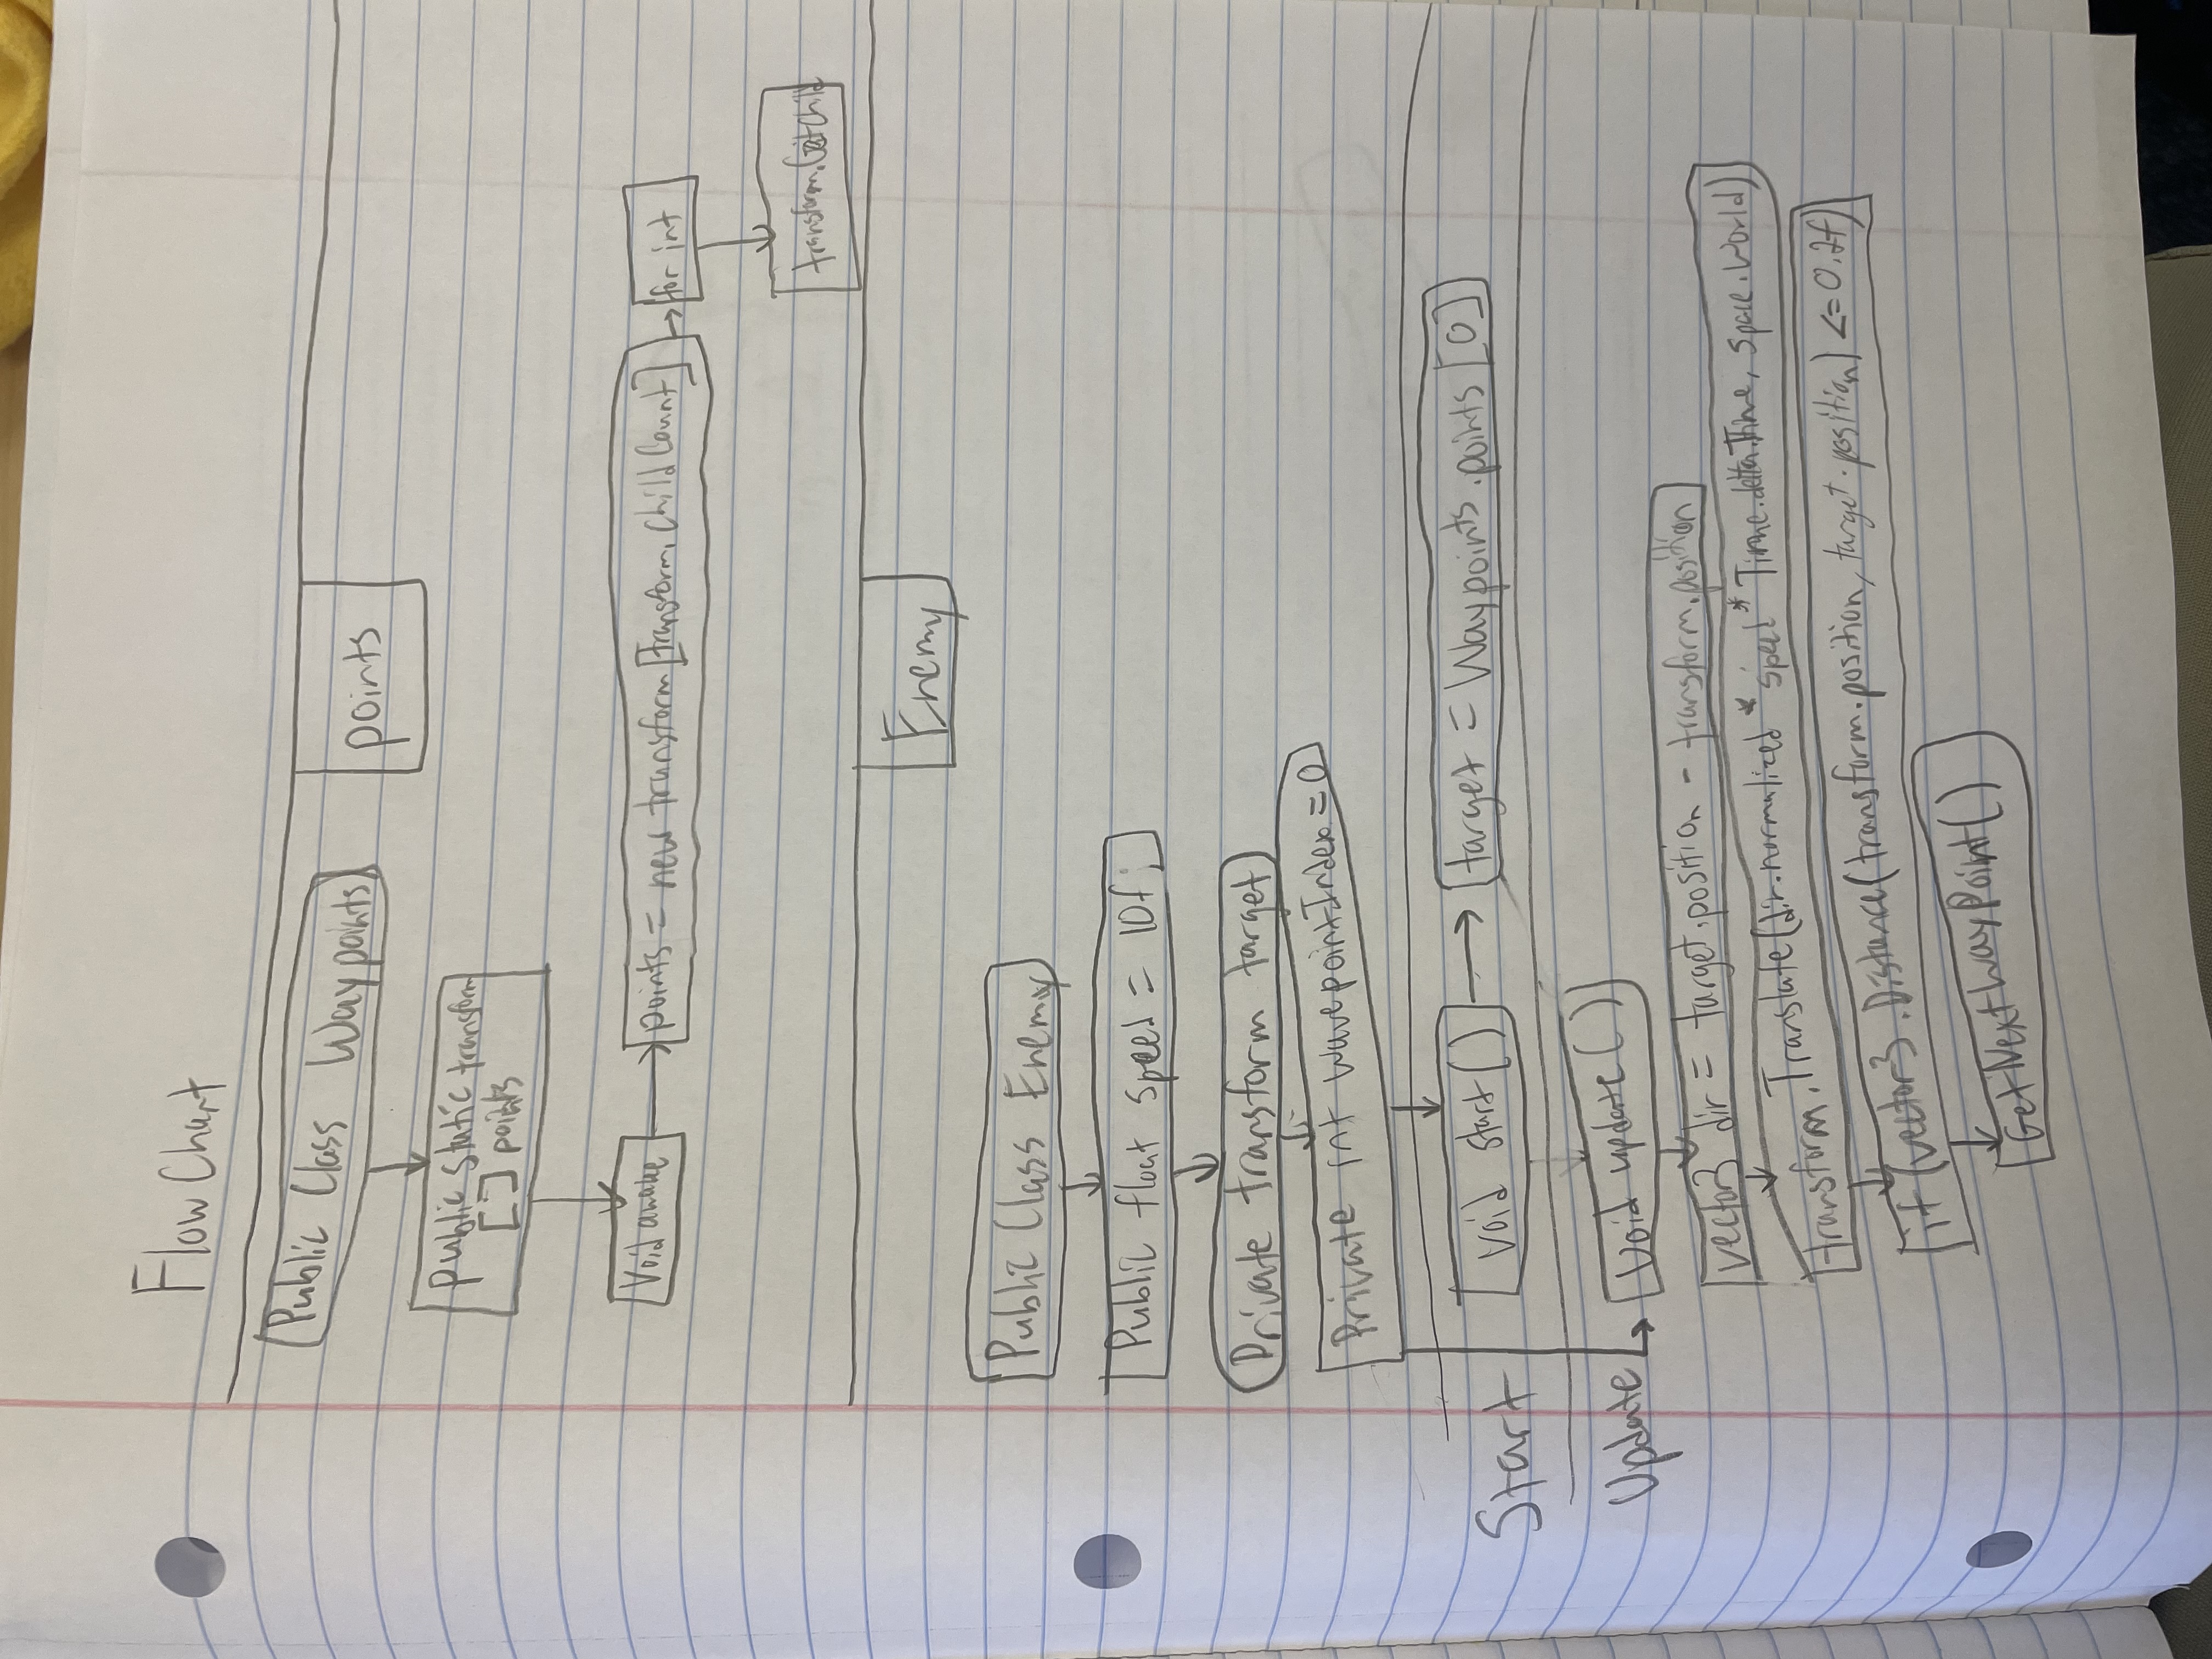 Flow Chart
Public Class Waypoints
points
public static transform
[] points
Void awake
points = new transform[transform.ChildCount]
for int
transform.GetChild
Enemy
Public Class Enemy
Public float speed = 10f;
Private transform target
Private int wavepointIndex = 0
Start
void start()
target = Waypoints.points[0]
Update
void update()
vector3 dir = target.position - transform.position
transform.Translate(dir.normalized * speed * Time.deltaTime, space.World)
if (vector3.Distance(transform.position, target.position) <= 0.2f)
GetNextWayPoint()